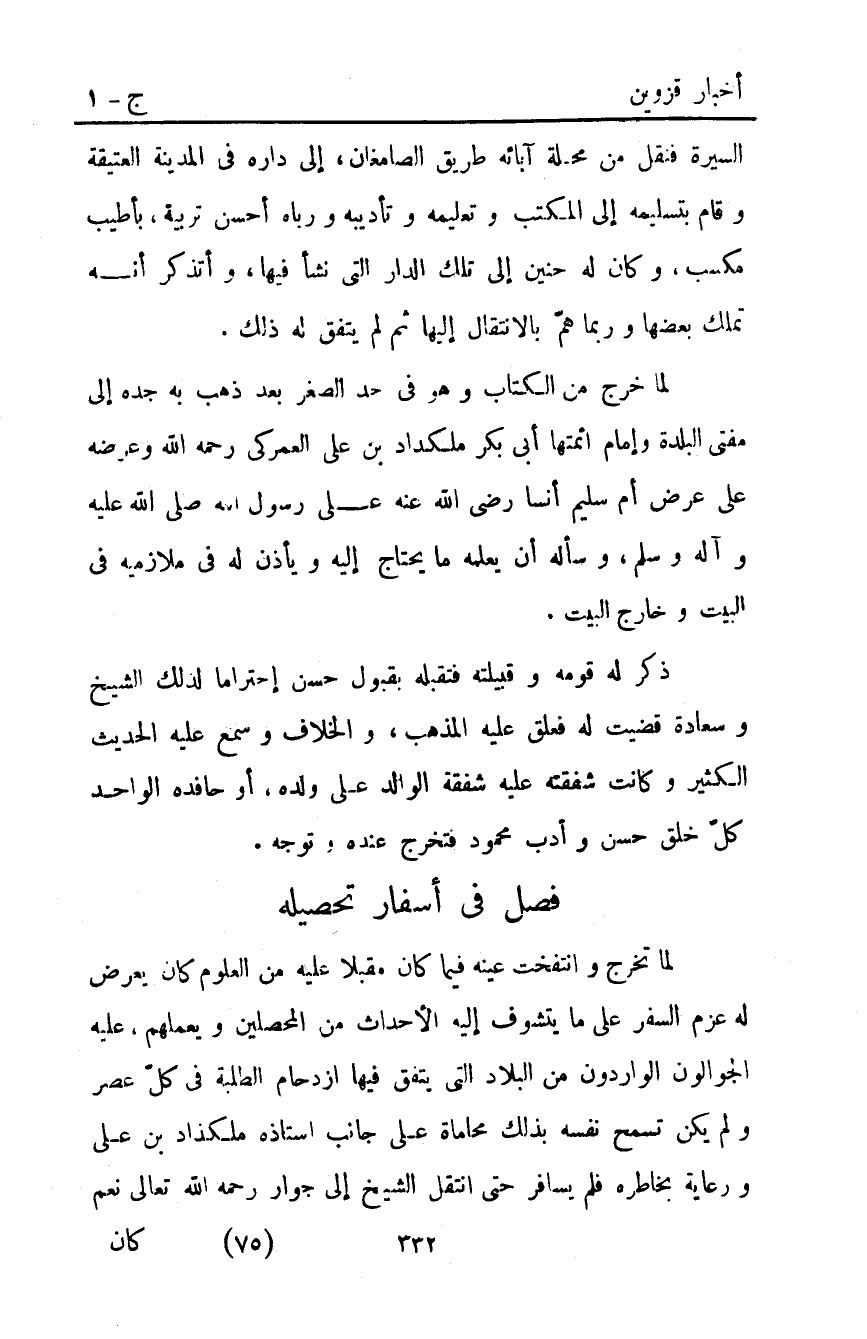 أخبار قزوين ج - ١
السيرة فنقل من محلة آبائه طريق الصامغان، إلى داره فى المدينة العتيقة
و قام بتسليمه إلى المكتب و تعليمه و تأديبه و رباه أحسن تربية، بأطيب
مكسب، و كان له حنين إلى تلك الدار التى نشأ فيها، و أتذكر أنـــه
تملك بعضها و ربما همّ بالانتقال إليها ثم لم يتفق له ذلك .
لما خرج من الكتاب و هو فى حد الصغر بعد ذهب به جده إلى
مفتى البلدة وإمام ائمتها أبى بكر ملكداد بن على العمركى رحمه الله وعرضه
على عرض أم سليم أنسا رضى الله عنه عـــلى رسول الله صلى الله عليه
و آله و سلم، و سأله أن يعلمه ما يحتاج إليه و يأذن له فى ملازميه فى
البيت و خارج البيت .
ذكر له قومه و قبيلته فتقبله بقبول حسن إحتراما لذلك الشيخ
و سعادة قضيت له فعلق عليه المذهب، و الخلاف و سمع عليه الحديث
الكثير و كانت شفقته عليه شفقة الوالد عـلى ولده، أو حافده الواحـد
كلّ خلق حسن و أدب محمود فتخرج عنده و توجه .
فصل فى أسفار تحصيله
لما تخرج و انتفخت عينه فيما كان مقبلا عليه من العلوم كان يعرض
له عزم السفر على ما يتشوف إليه الأحداث من المحصلين و يعملهم، عليه
الجوالون الواردون من البلاد التى يتفق فيها ازدحام الطلبة فى كلّ عصر
و لم يكن تسمح نفسه بذلك محاماة عـلى جانب استاذه ملكذاد بن عـلى
و رعاية بخاطره فلم يسافر حتى انتقل الشيخ إلى جوار رحمه الله تعالى نعم
٣٣٢ (٧٥) كان